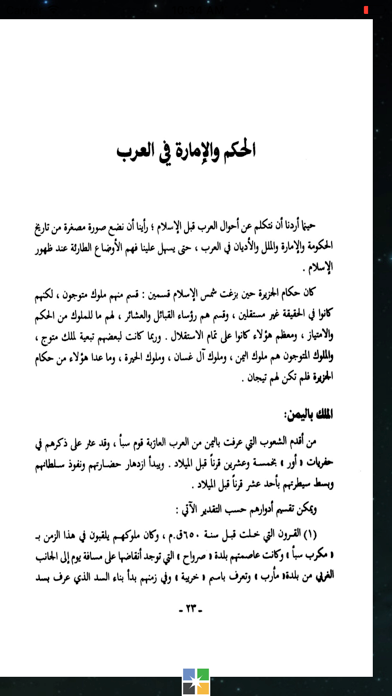 الحكم والإمارة في العرب
حينما أردنا أن نتكلم عن أحوال العرب قبل الإسلام ؛ رأينا أن نضع صورة مصغرة من تاريخ
الحكومة والإمارة والملل والأديان في العرب ، حتى يسهل علينا فهم الأوضاع الطارئة عند ظهور
الإسلام .
كان حكام الجزيرة حين بزغت شمس الإسلام قسمين : قسم منهم ملوك متوجون ، لكنهم
كانوا في الحقيقة غير مستقلين ، وقسم هم رؤساء القبائل والعشائر ، لهم ما للملوك من الحكم
والامتياز ، ومعظم هؤلاء كانوا على تمام الاستقلال . وربما كانت لبعضهم تبعية لملك متوج ،
والملوك المتوجون هم ملوك اليمن ، وملوك آل غسان ، وملوك الحيرة ، وما عدا هؤلاء من حكام
الجزيرة فلم تكن لهم تيجان .
الملك باليمن:
من أقدم الشعوب التي عرفت باليمن من العرب العاربة قوم سبأ ، وقد عثر على ذكرهم في
حفريات « أور » بخمسة وعشرين قرناً قبل الميلاد . ويبدأ ازدهار حضارتهم ونفوذ سلطانهم
وبسط سيطرتهم بأحد عشر قرناً قبل الميلاد .
ويمكن تقسيم أدوارهم حسب التقدير الآتي :
(١) القرون التي خلت قبل سنة ٦٥٠ق.م ، وكان ملوكهم يلقبون في هذا الزمن بـ
« مكرب سبأ » وكانت عاصمتهم بلدة « صرواح » التي توجد أنقاضها على مسافة يوم إلى الجانب
الغربي من بلدة« مأرب » وتعرف باسم « خريبة » وفي زمنهم بدأ بناء السد الذي عرف بسد
- ٢٣ -